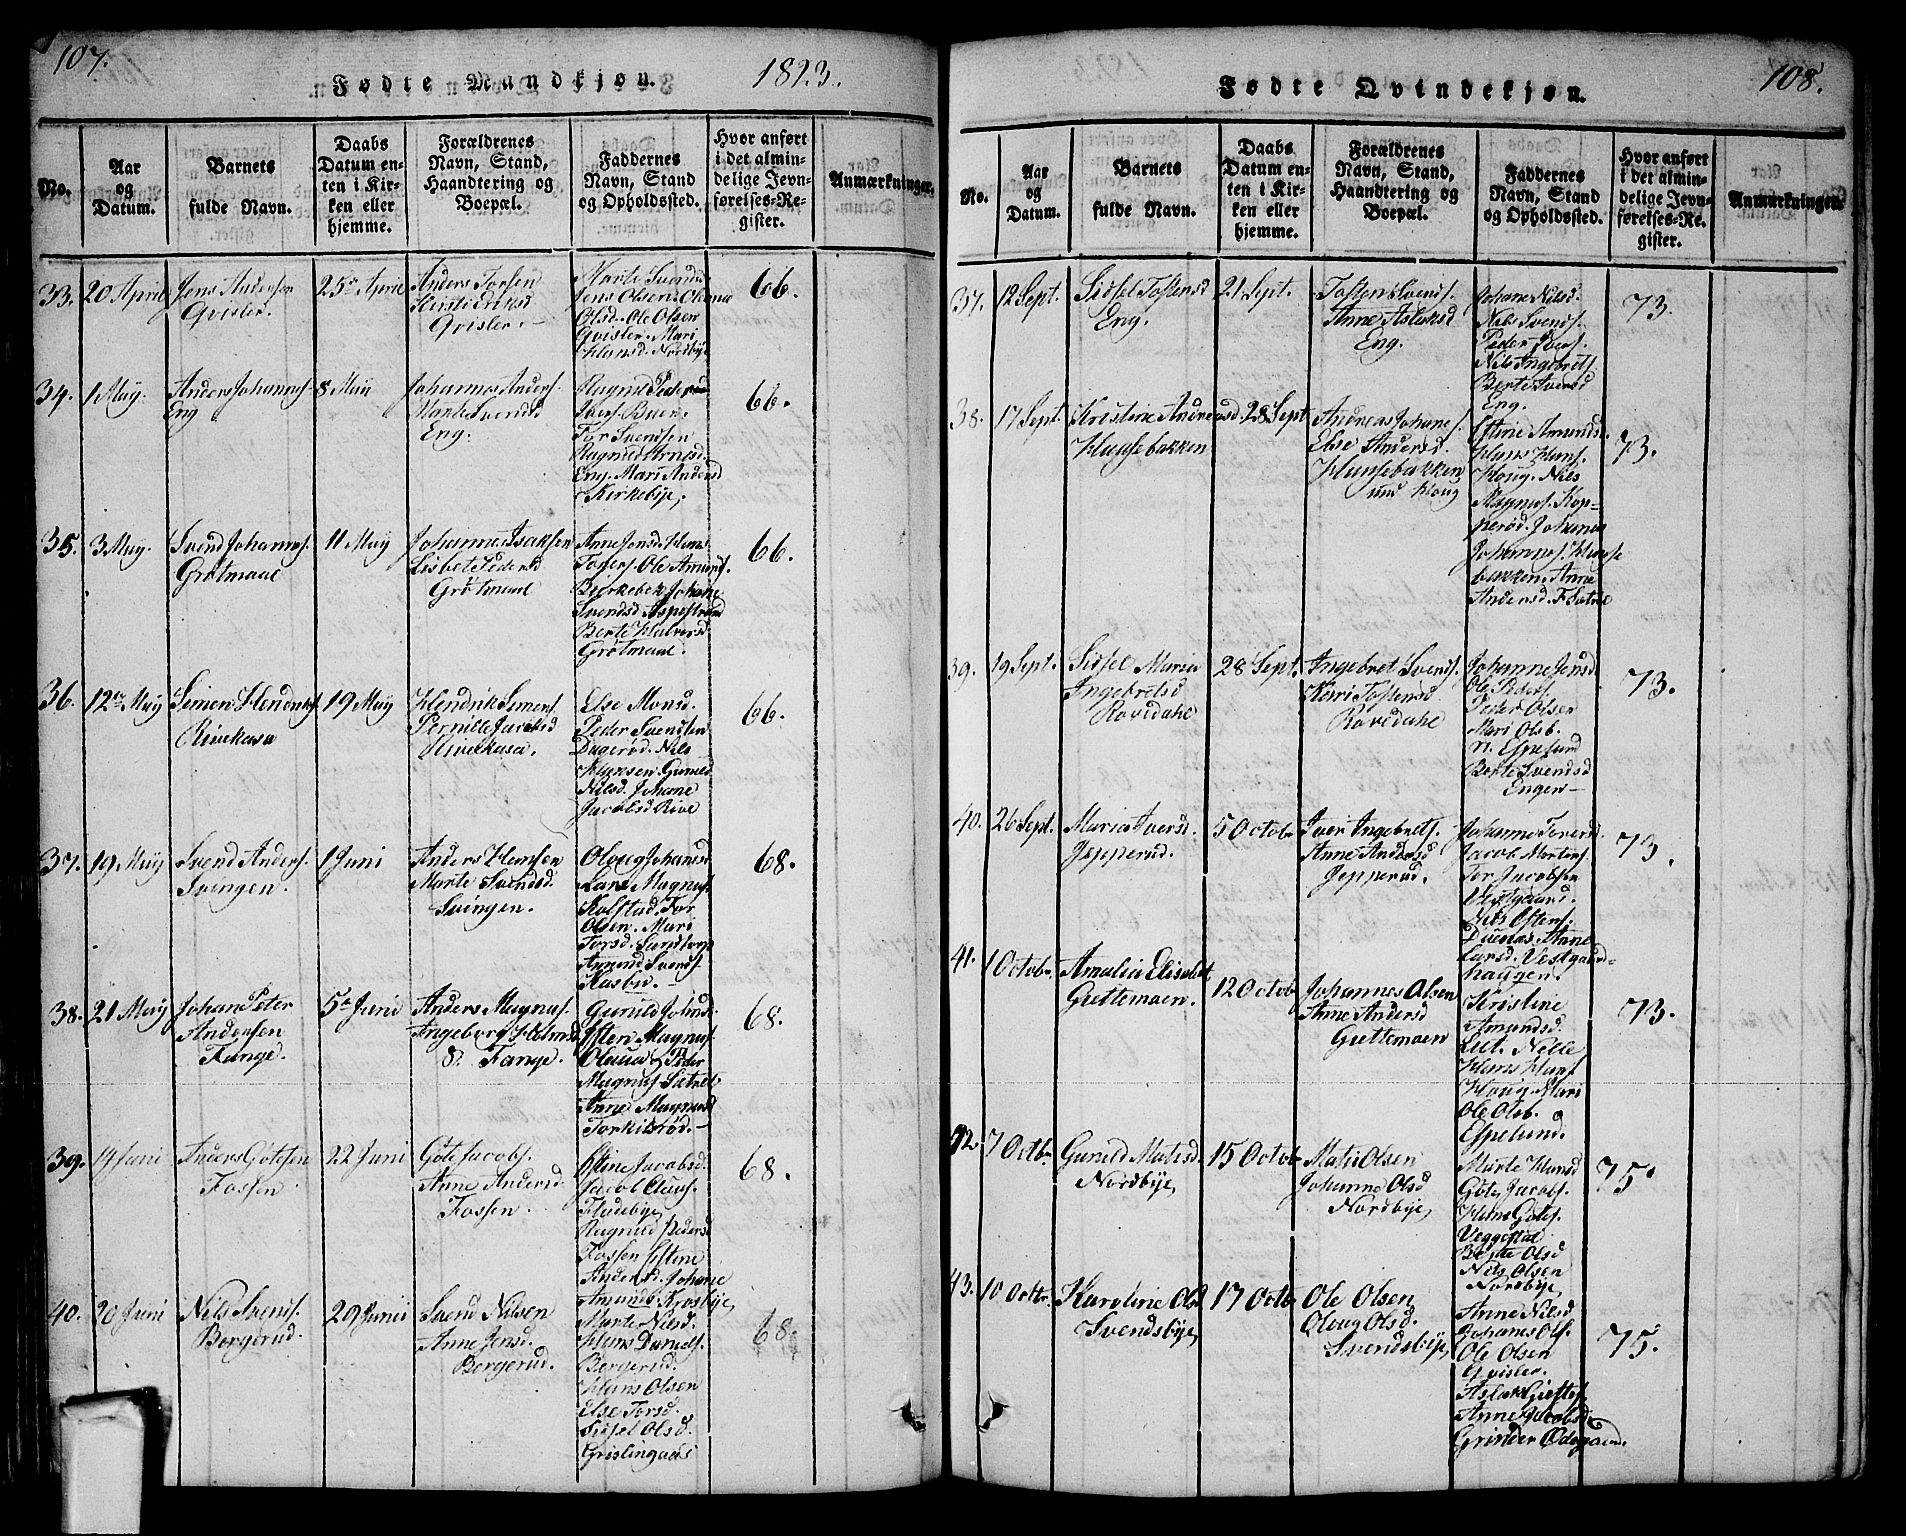 107.
Fødte Mandkjøn.
1823.
No.
Aar og Datum.
Barnets fulde Navn.
Daabs Datum enten i Kirken eller hjemme.
Forældrenes Navn, Stand, Haandtering og Boepæl.
Faddernes Navn, Stand og Opholdssted.
Hvor anført i det almindelige Jevnførelses-Register.
Anmærkninger.
33.
20 April
Jens Andersen
Qvisler.
25 April
Anders Torsen
Kirsti Eriksd
Qvisler.
Marte Svendsd
Jens Olsen Oleana
Olsd. Ole Olsen
Qvisler. Mari
Hansd. Nordbye
66.
34.
1 May.
Anders Johannes.
Eng
8 May
Johannes Anders.
Marte Svendsd
Eng.
Ragnild Peders
Iver. Buer.
Tor Svendsen
Ragnild Arnesd.
Eng. Mari Andersd
Kirkebye.
66.
35.
3 May.
Svend Johannes.
Grøtmaal
11 May
Johannes Isaksen
Lisbet Pedersd
Grøtmaal
Anne Jensd. Hans
Torers. Ole Amunds.
Bierkebek Johane
Svendsd Aspestrand
Berte Halvorsd
Grøtmaal.
66.
36.
12 May
Simen Hendriks.
Rivekasa
19 May
Hendrik Simens.
Pernille Jacobsd
Rivekasa.
Else Monsd.
Peder Svendsen
Dagerød. Nils
Hansen. Gunild
Nilsd. Johane
Jacobsd Rive
66.
37.
19 May
Svend Anders.
Svingen.
1 Juni
Anders Hansen
Marte Svendsd.
Svingen.
Oloug Johansd
Lars Magnus.
Kolstad. Tor
Olsen. Mari
Torsd. Sandtorp
Amund Svends.
Kasbu.
68.
38.
21 May
Johan Peter
Andersen
Fange.
5 Juni
Anders Magnus.
Ingeborg Helmsd
Fange.
Gunild Johnsd.
Esten Magnus.
Olaua Peder
Magnus. Sætret
Anne Magnusd
Torkilsrød.
68.
39.
14 Juni
Anders Gøtesen
Fossen
22 Juni
Gøte Jacobs.
Anne Andersd
Fossen.
Estine Jacobsd.
Jacob Claus.
Fladebye
Ragnild Pedersd
Fossen Estine
Andersd. Johane
Amundsd. Krosbye,
68.
40.
20 Juni
Nils Svends.
Borgerud.
29 Junii
Svend Nilsen
Anne Jensd.
Borgerud.
Marte Nilsd.
Hans Daniels.
Borgerud.
Hans Olsen
Else Torsd.
Sidsel Olsd.
Grislingaas
68.
108.
Fødte Qvindekjøn.
No.
Aar og Datum.
Barnets fulde Navn.
Daabs Datum enten i Kirken eller hjemme.
Forældrenes Navn, Stand, Haandtering og Boepæl.
Faddernes Navn, Stand og Opholdssted.
Hvor anført i det almindelige Jevnførelses-Register.
Anmærkninger.
37.
12 Sept.
Sidsel Tostensd
Eng.
21 Sept.
Tosten Svends.
Anne Aslaksd
Eng.
Johane Nilsd.
Nils Svends.
Peder Ivers.
Nils Ingebrets.
Berte Iversd
Eng.
73.
38.
17 Sept.
Kristine Andreasd.
Hugsebakken
28 Sept
Andreas Johanes.
Else Andersd.
Hunsebakken
und Houg
Estine Amundsd.
Hans Hans.
Houg. Nils
Magnus. Kopperød. Johanes
Johannes. Hunsebakken. Anne
Andersd. Sætre
73.
39.
19 Sept.
Sidsel Maria
Ingebretsd
Rovedahl
28 Sept.
Ingebret Svends.
Kari Tostensd
Rovedahl
Johanne Jensd
Ole Peders.
Peder Olsen
Mari Olsb.
n. Espelund
Berte Svendsd
Engen
73.
40.
26 Sept.
Maria Iversd.
Jepperud.
5 Octob
Iver Ingebrets.
Anne Andersd
Jepperud.
Johanne Torersd.
Jacob Mortens.
Tor Jacobsen
Vestgaard.
Nils Ostens.
Duenæs. Anne
Larsd. Vestgaardhaugen.
73.
41.
1 Octob.
Amalia Elisabet
Guttemoen.
12 Octob
Johannes Olsen
Anne Andersd
Guttemoen
Kristine
Amundsd.
Lut. Nelle
Hans Hans.
Houg. Mari
Ole Olsb.
Espelund.
73.
42.
7 Octb.
Gunild Matisd.
Nordbye,
15 Octob
Matis Olsen
Johanne Olsd
Nordbye,
Marte Hansd
Gøte Jacobs.
Hans Gøtes.
Veggestøl
Berte Olsd
Nils Olsen
Nordbye
75.
43.
10 Octb.
Karoline Olsd
Svendsbye,
17 Octb
Ole Olsen
Oloug Olsd.
Svendsbye,
Anne Nilsd
Johanes Ols.
Ole Olsen
Qvisler.
Aslak Giettes.
Anne Jacobsd.
Grinder Ødegaard.
75.